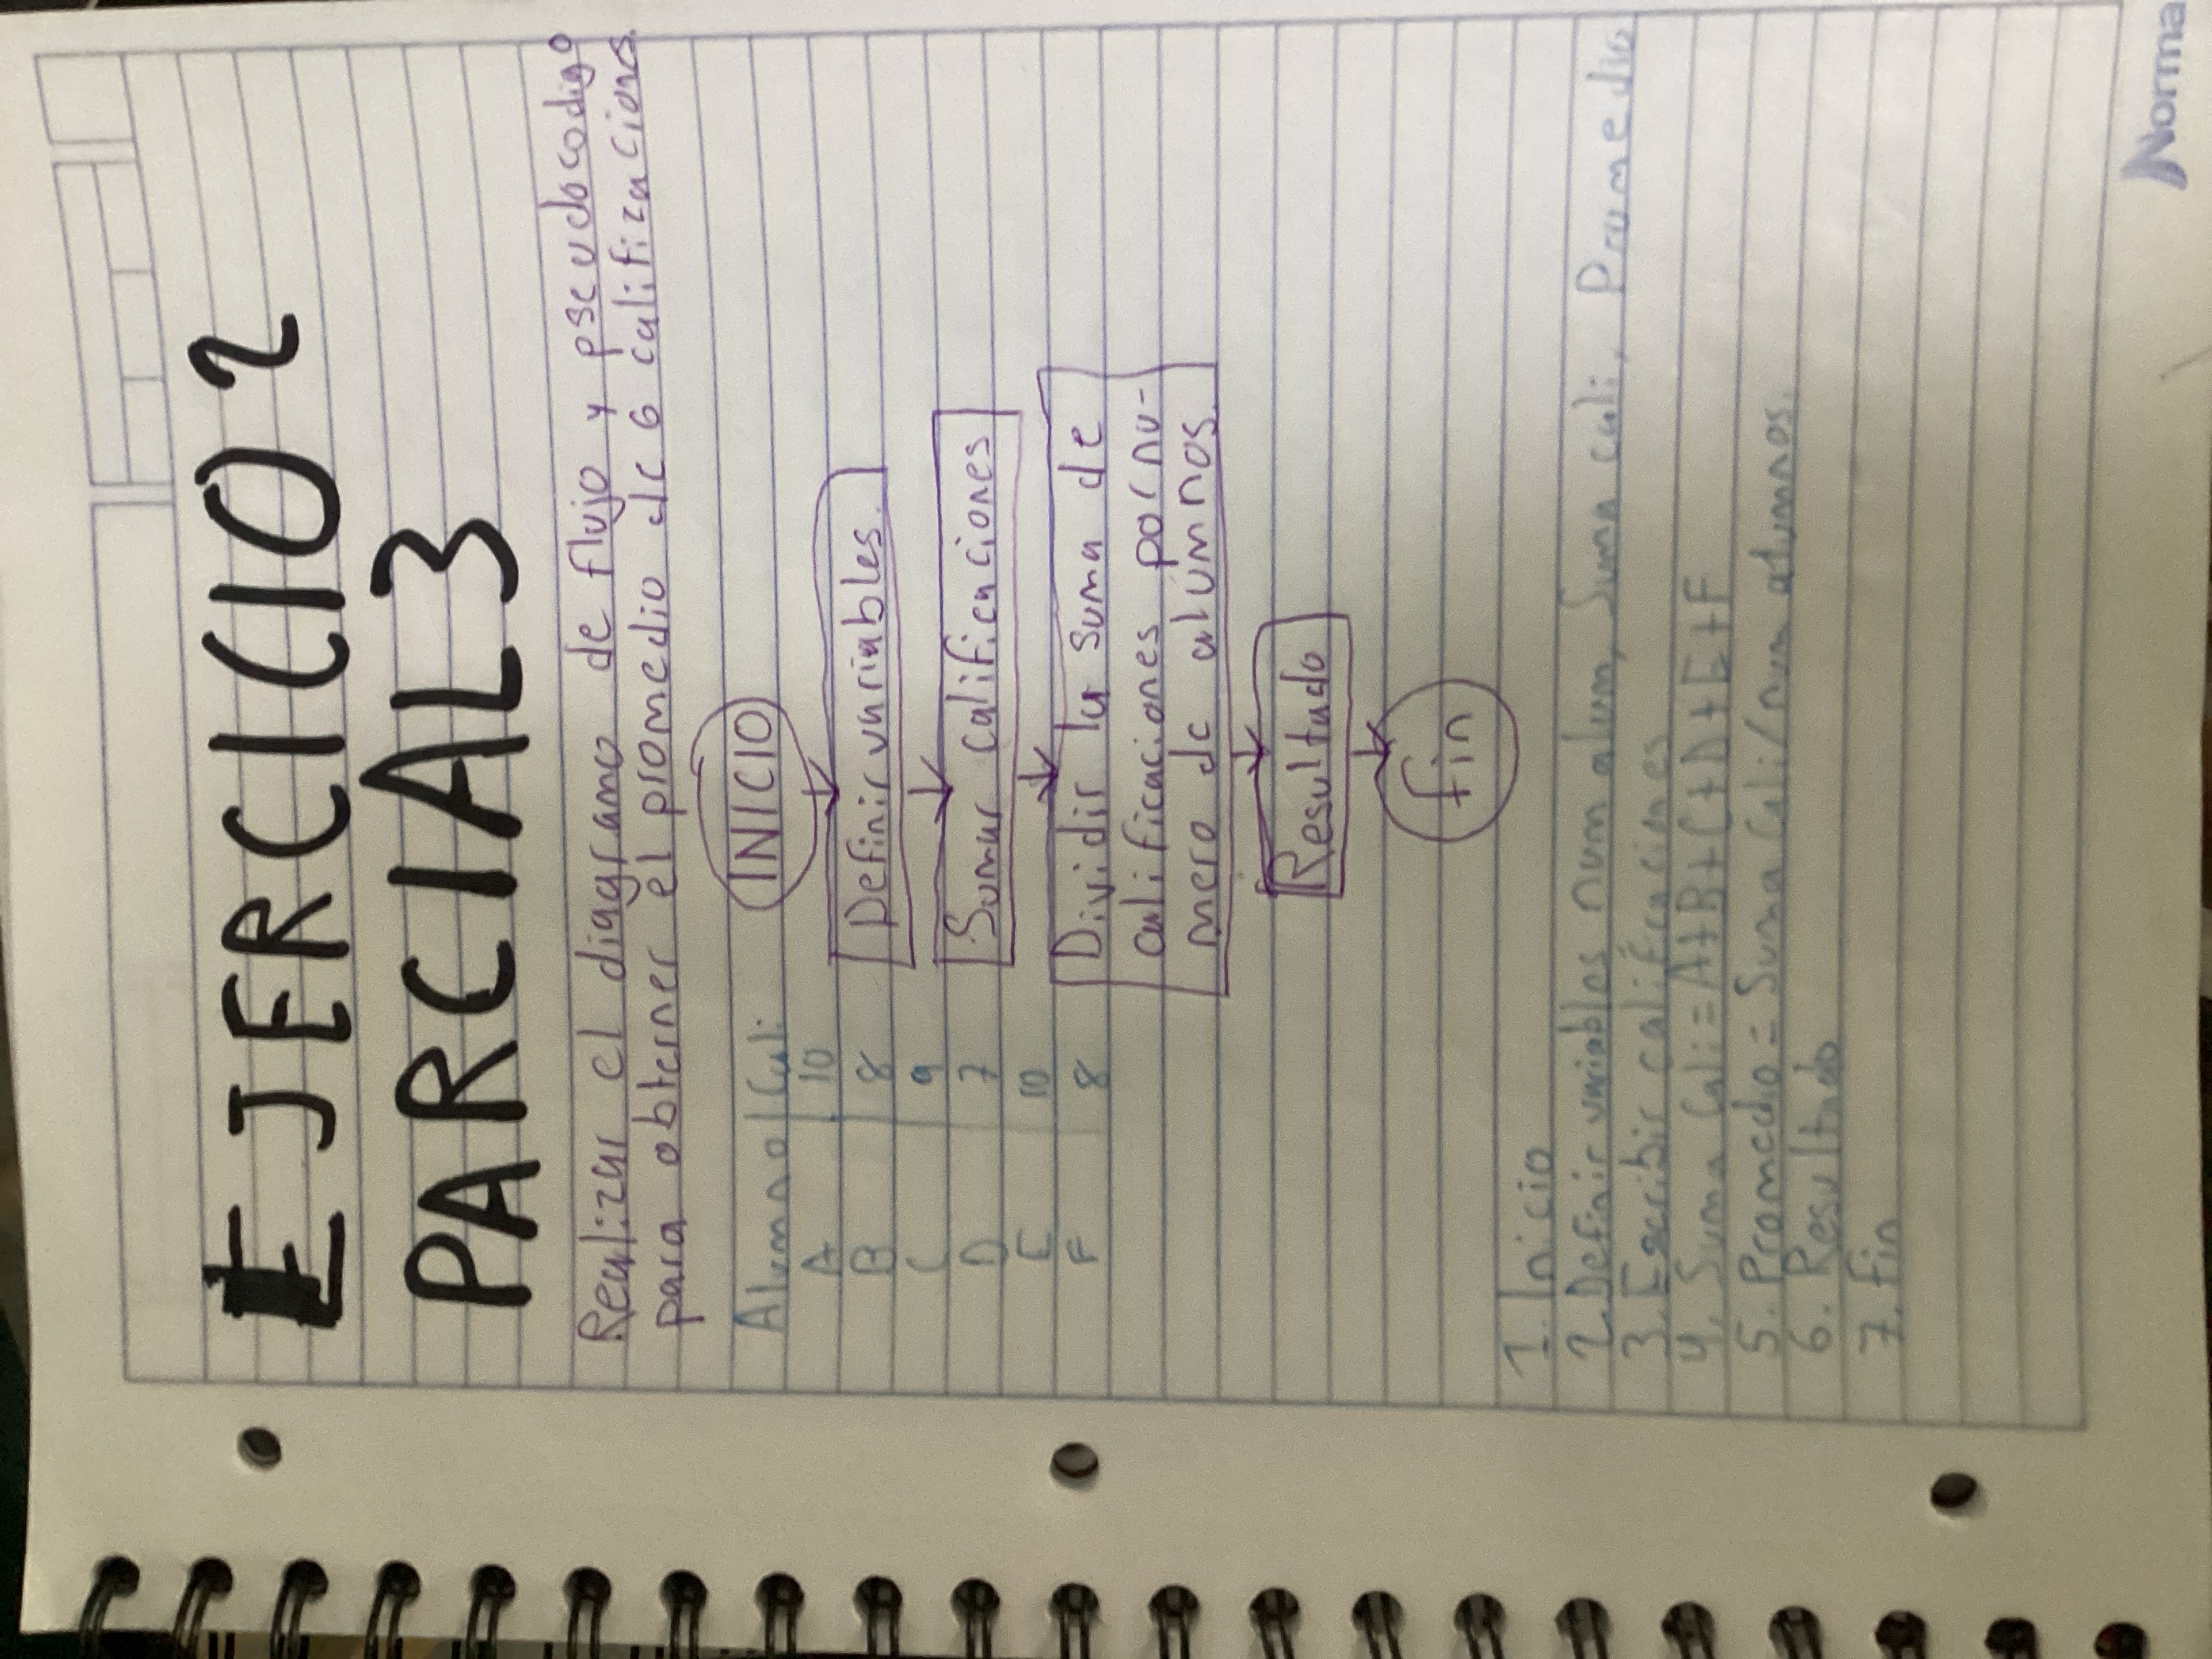 EJERCICIO 2
PARCIAL 3
Realizar el diagrama de flujo y pseudocodigo
para obterner el promedio de 6 califizaciones.
INICIO
Definir variables.
Sumar calificaciones
Dividir la suma de
calificaciones por nu-
mero de alumnos.
Resultado
fin
Alumno Cali.
A 10
B 8
C 9
D 7
E 10
F 8
1. Inicio
2. Definir variables num alum, Suma cali, Promedio
3. Escribir calificaciones
4. Suma Cali = A+B+C+D+E+F
5. Promedio = Suma Cali/num alumnos.
6. Resultado
7. fin
Norma